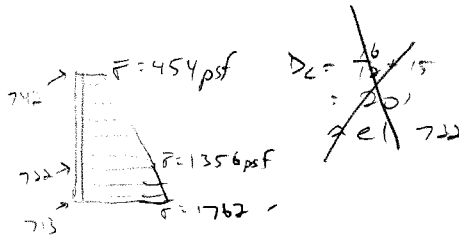 742
σ̄ = 454 psf
722
σ̄ = 1356 psf
713
σ̄ = 1762
D_c =
= 20'
el 722